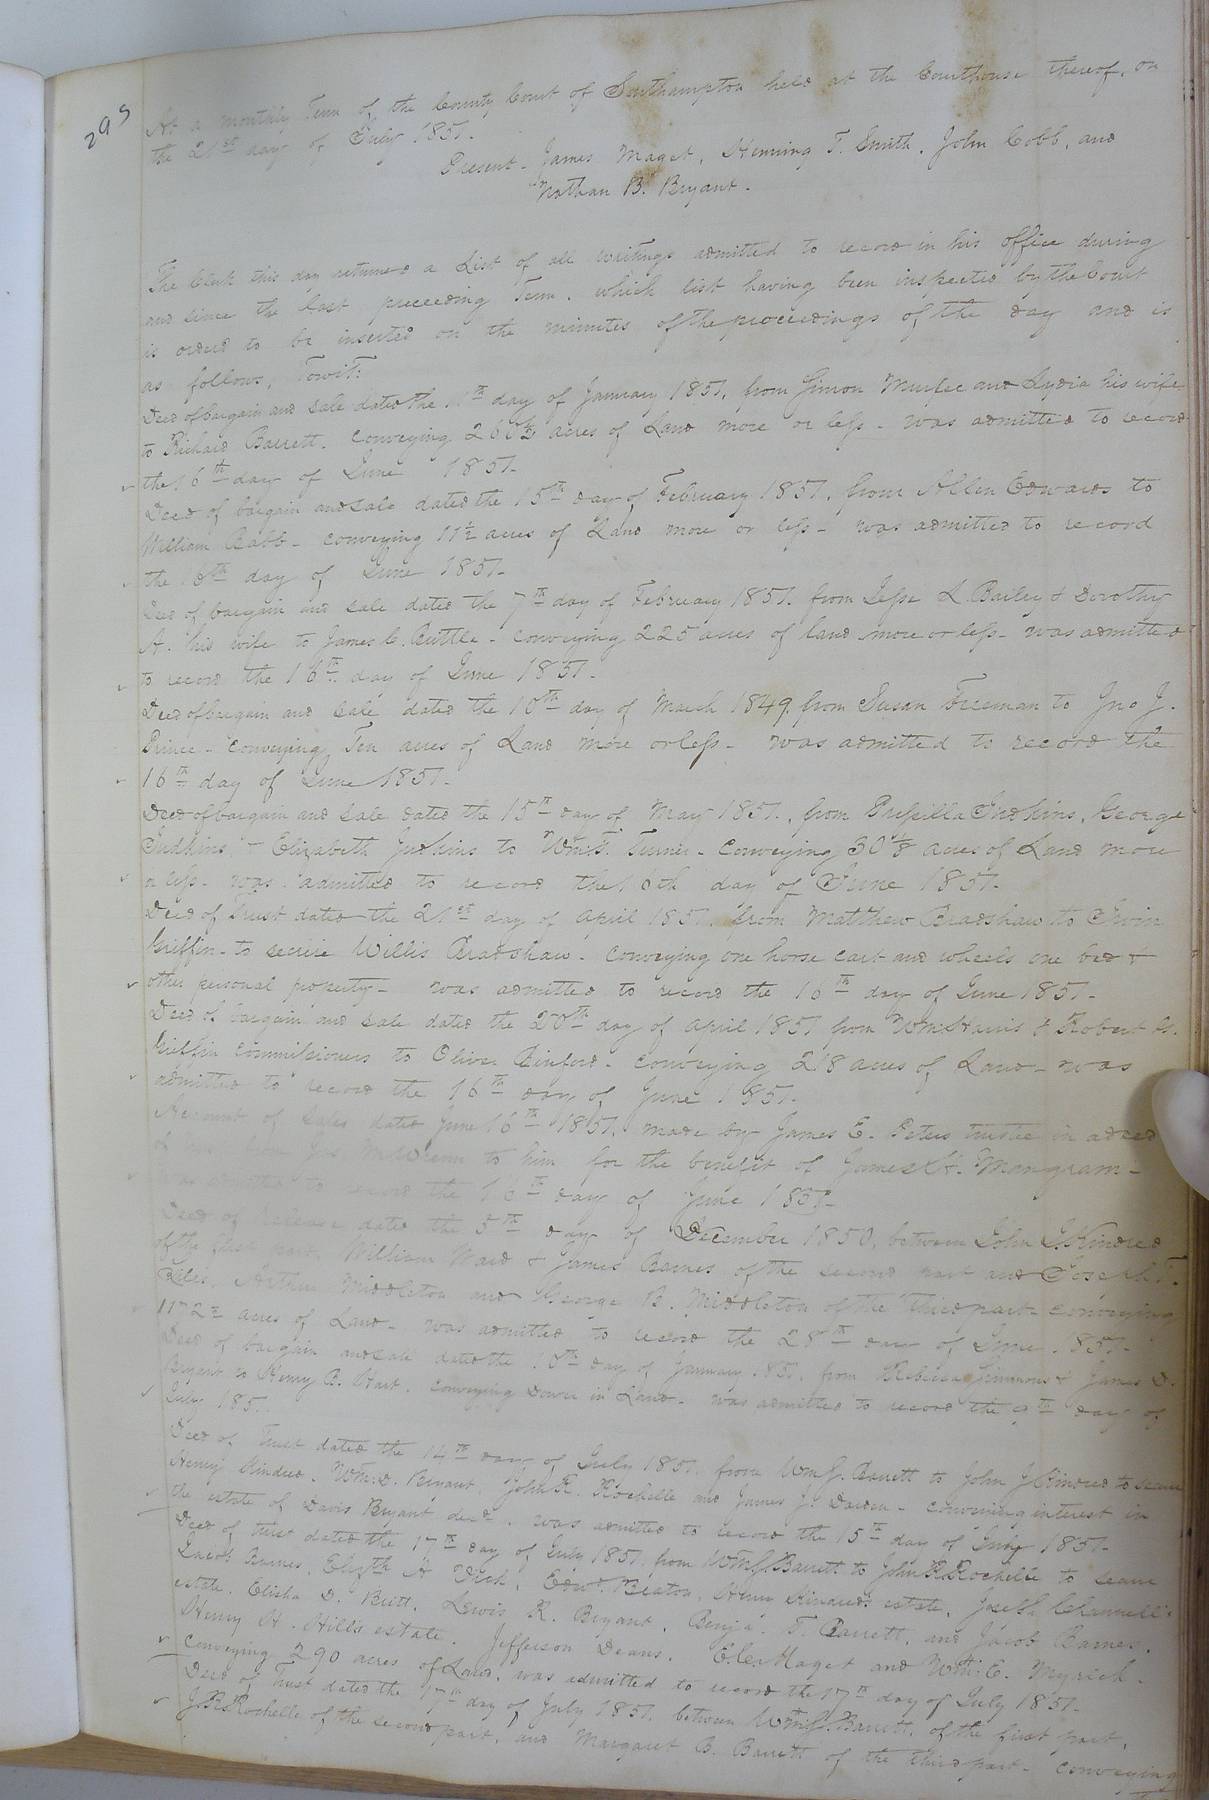 295
At a monthly Term of the County Court of Southampton held at the Courthouse thereof, on
the 21st day of July 1851.
Present - James Maget, Henning T. Smith, John Cobb, and
Nathan B. Bryant.
The Clerk this day returned a List of all writings admitted to record in his office during
and since the last preceeding Term, which list having been inspected by the Court
is ordered to be inserted on the minutes of the proceedings of the day and is
as follows, Towit:
Deed of bargain and sale dated the day of January 1851, from Simon Murfee and Lydia his wife
to Richard Barrett, conveying acres of Land more or less - was admitted to record
the 16th day of June 1851-
Deed of bargain and sale dated the 15th day of February 1851, from Allen Edwards to
William Babb - conveying 11½ acres of Land more or less - was admitted to record
the 16th day of June 1851-
Deed of bargain and sale dated the 7th day of February 1851, from Jesse L Bailey & Dorothy
A. his wife to James C. Buttle - conveying 225 acres of land more or less - was admitted
to record the 16th day of June 1851.-
Deed of bargain and sale dated the 10th day of March 1849, from Susan Freeman to Jno J.
Prince - conveying Ten acres of Land more or less - was admitted to record the
16th day of June 1851-
Deed of bargain and sale dated the 15th day of May 1851, from Judkins, George
Judkins & Elizabeth Judkins to Wm. T. Turner - conveying 30⅛ acres of Land more
or less - was admitted to record the 16th day of June 1851.
Deed of Trust dated the 21st day of April 1851 from Matthew Bradshaw to Irvin
Griffin - to secure Willis Bradshaw - conveying one horse cart and wheels one bed &
other personal property - was admitted to record the 16th day of June 1851-
Deed of bargain and sale dated the 20th day of April 1851 from Wm. Harris & Robert
Griffin commissioners to Oliver Binford - conveying 218 acres of Land - was
admitted to record the 16th day of June 1851.
Account of Sales dated June 16th 1851, made by James E. Peters trustee in a deed
to him for the benefit of James H. Mangram -
was admitted to record the 16th day of June 1851-
Deed of Release dated the 5th day of December 1850, between John J. Kindred
of the first part, William Ward & James Barnes of the second part and Joseph T.
Arthur Middleton and George B. Middleton of the third part - conveying
acres of Land - was admitted to record the 28th day of June 1851-
Deed of bargain and sale dated the 10th day of January 1851, from Rebecca Simmons & James D.
Bryant to Henry B. Hart, conveying Dower in Land - was admitted to record the 9th day of
July 1851.
Deed of Trust dated the 14th day of July 1851, from Wm J. Barrett to John J Kindred to secure
Henry Kindred, Wm. D. Bryant, John R. Rochelle and James J. Darden - conveying interest in
the estate of Davis Bryant decd. was admitted to record the 15th day of July 1851-
Deed of Trust dated the 17th day of July 1851, from Wm J. Barrett to John R. Rochelle to secure
Jacob Barnes, Elizth A Vick, Edwd. Beaton, Henry Kindred's estate, Joseph
estate, Elisha D. Britt, Lewis R. Bryant, Benja. T. Barrett, and Jacob Barnes,
Henry H. Hills estate, Jefferson Deans, E.C. Maget and Wm. E. Myrick -
Conveying 290 acres of Land, was admitted to record the 17th day of July 1851-
Deed of Trust dated the 17th day of July 1851, between Wm J. Barrett, of the first part,
J. R. Rochelle of the second part, and Margaret B. Barrett of the third part - conveying